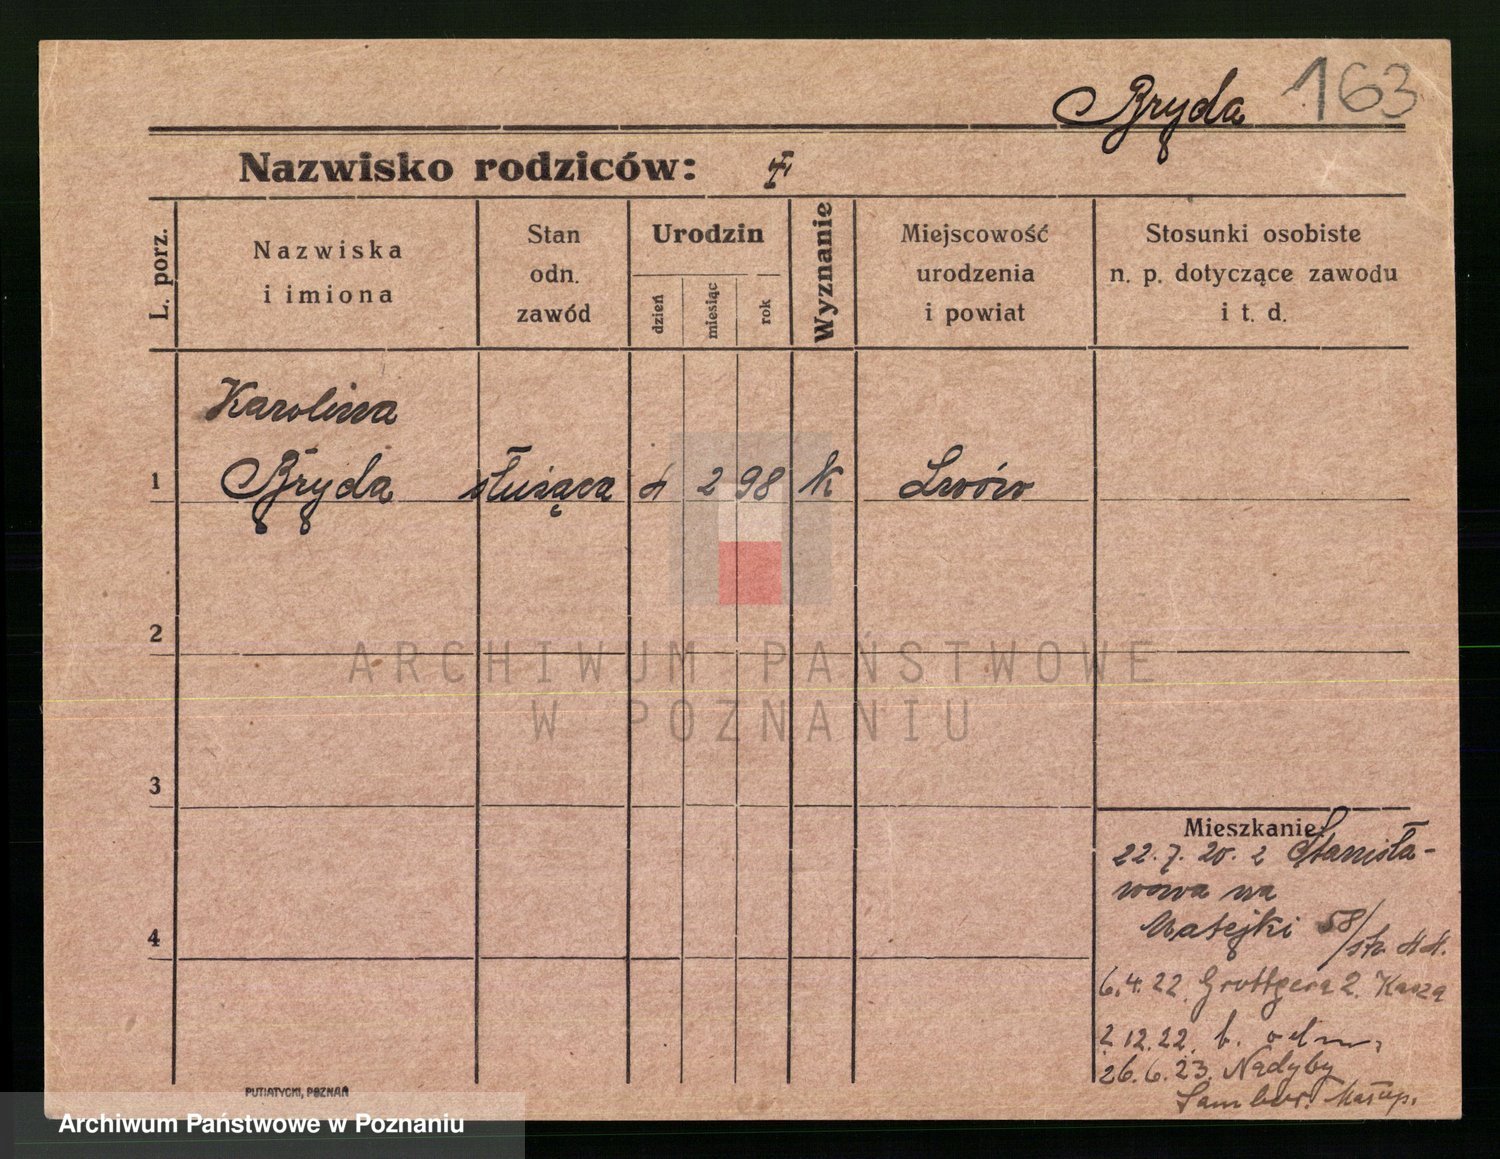 Bryda 163
Nazwisko rodziców:
L. porz.
Nazwiska
i imiona
Stan
odn.
zawód
Urodzin
dzień
miesiąc
rok
Wyznanie
Miejscowość
urodzenia
i powiat
Stosunki osobiste
n. p. dotyczące zawodu
i t. d.
Karolina
1 Bryda służąca 4 2 98 k Lwów
2
3
4
Mieszkanie
22.7.20. z Stanisła-
wowa na
Matejki 58/
6.4.22. Grottgera 2. Kasza
2.12.22. b. odm.
26.6.23. Nadyby
Sambor. Małop.
PUTIATYCKI, POZNAŃ
ARCHIWUM PAŃSTWOWE
W POZNANIU
Archiwum Państwowe w Poznaniu